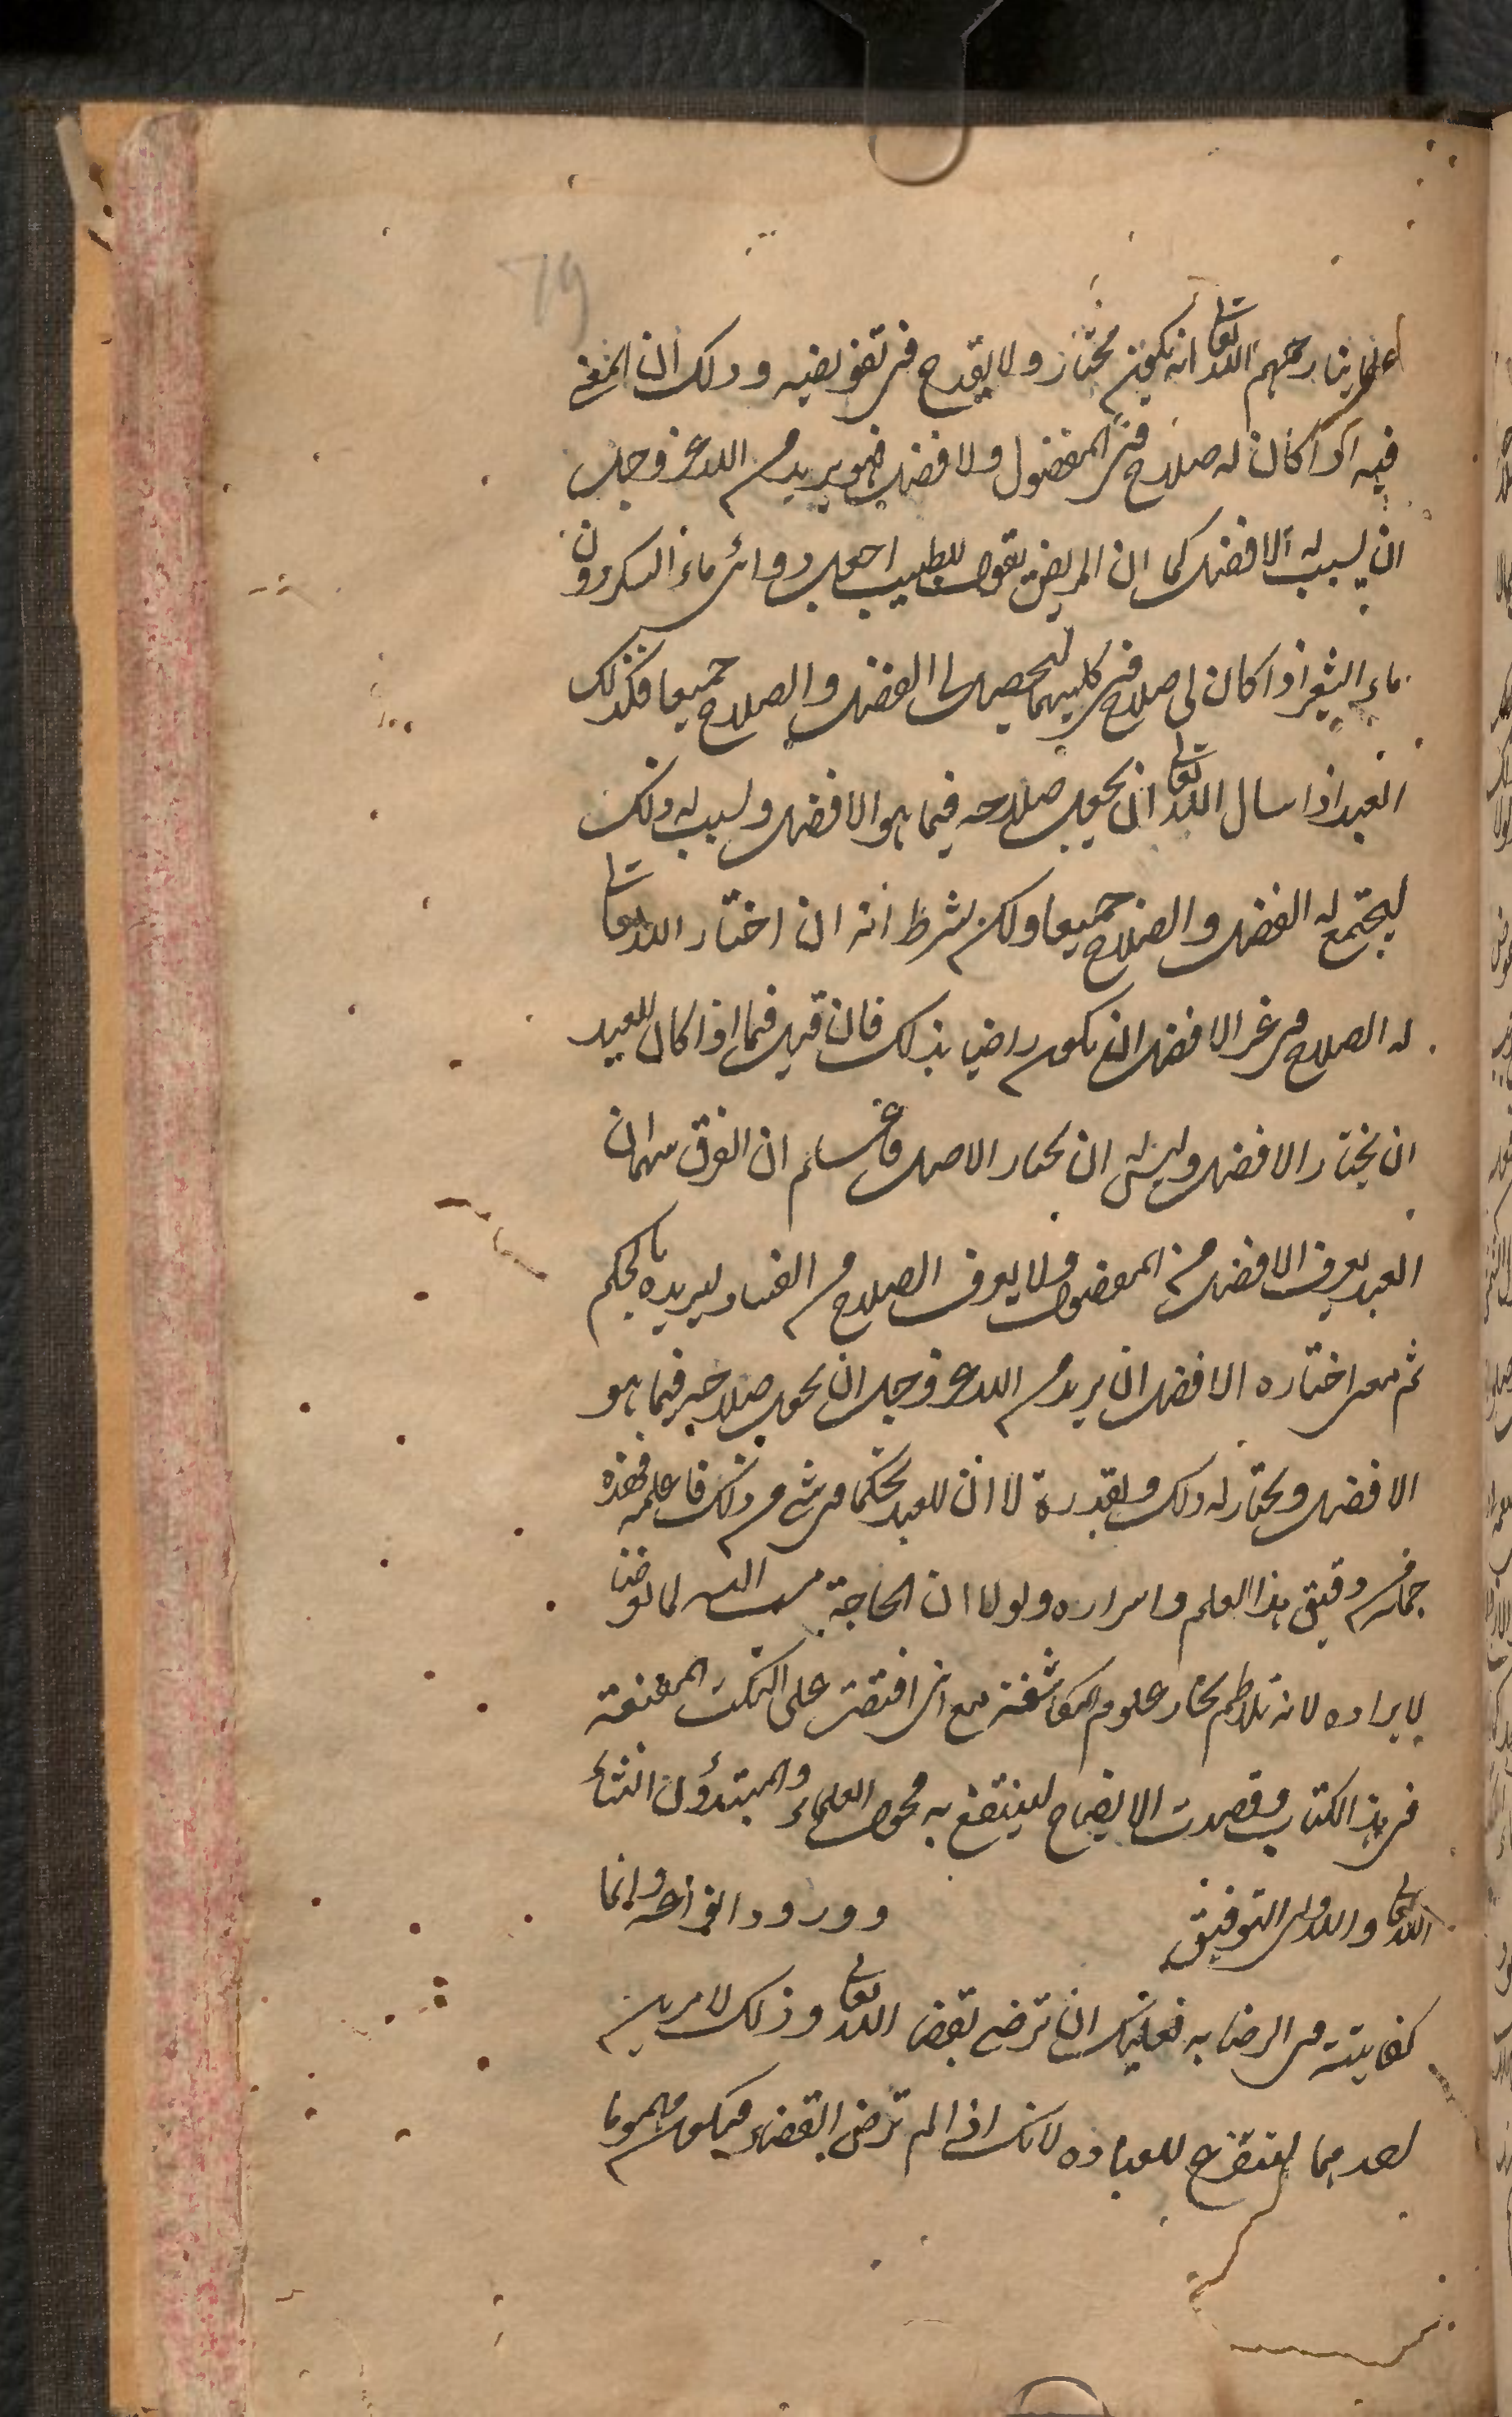 79
علماينا رحمهم الله تعالى انه يكون مختار ولا يقدح فى تفويضه وذلك ان المعنى
فيه اذا كان له صلاح فى المفضول والافضل فهو يريد من الله عز وجل
ان يسبب له الافضل كما ان المريض يقول للطبيب اجعل دوائى ماء السكر دون
ماء الشعير اذا كان لى صلاح فى كليهما ليحصل لى الفضل والصلاح جميعا فكذلك
العبد اذا سال الله تعالى ان يجعل صلاحه فيما هو الافضل ويسبب له ذلك
ليجتمع له الفضل والصلاح جميعا ولكن بشرط انه ان اختار الله تعالى
له الصلاح فى غير الافضل ان يكون راضيا بذلك فان قيل فما اذا كان للعبد
ان يختار الافضل وليس له ان يختار الاصلح فاعلم ان الفرق بينهما ان
العبد يعرف الافضل من المفضول ولا يعرف الصلاح من الفساد ليريده بالحكم
ثم معنى اختاره الافضل ان يريد من الله عز وجل ان يجعل صلاحه فيما هو
الافضل ويختار له ذلك ويقدره لا ان للعبد تحكما فى شى من ذلك فاعلمه فهذه
جملة من دقيق هذا العلم واسراره ولولا ان الحاجة مست اليه لما تعرضنا
لايراده لانه تلاطم بحار علوم المكاشفة مع انى اقتصرت على النكت المقنعة
فى هذا الكتاب وقصدت الايضاح لينتفع به فحول العلماء والمبتدؤن انشاء
الله تعالى والله ولى التوفيق وورود انواعه وانما
كفايته فى الرضا به فعليك ان ترضى بقضا الله تعالى وذلك لامرين
احدهما لتتفرغ للعباده لانك اذا لم ترض بالقضاء فيكون مهموما